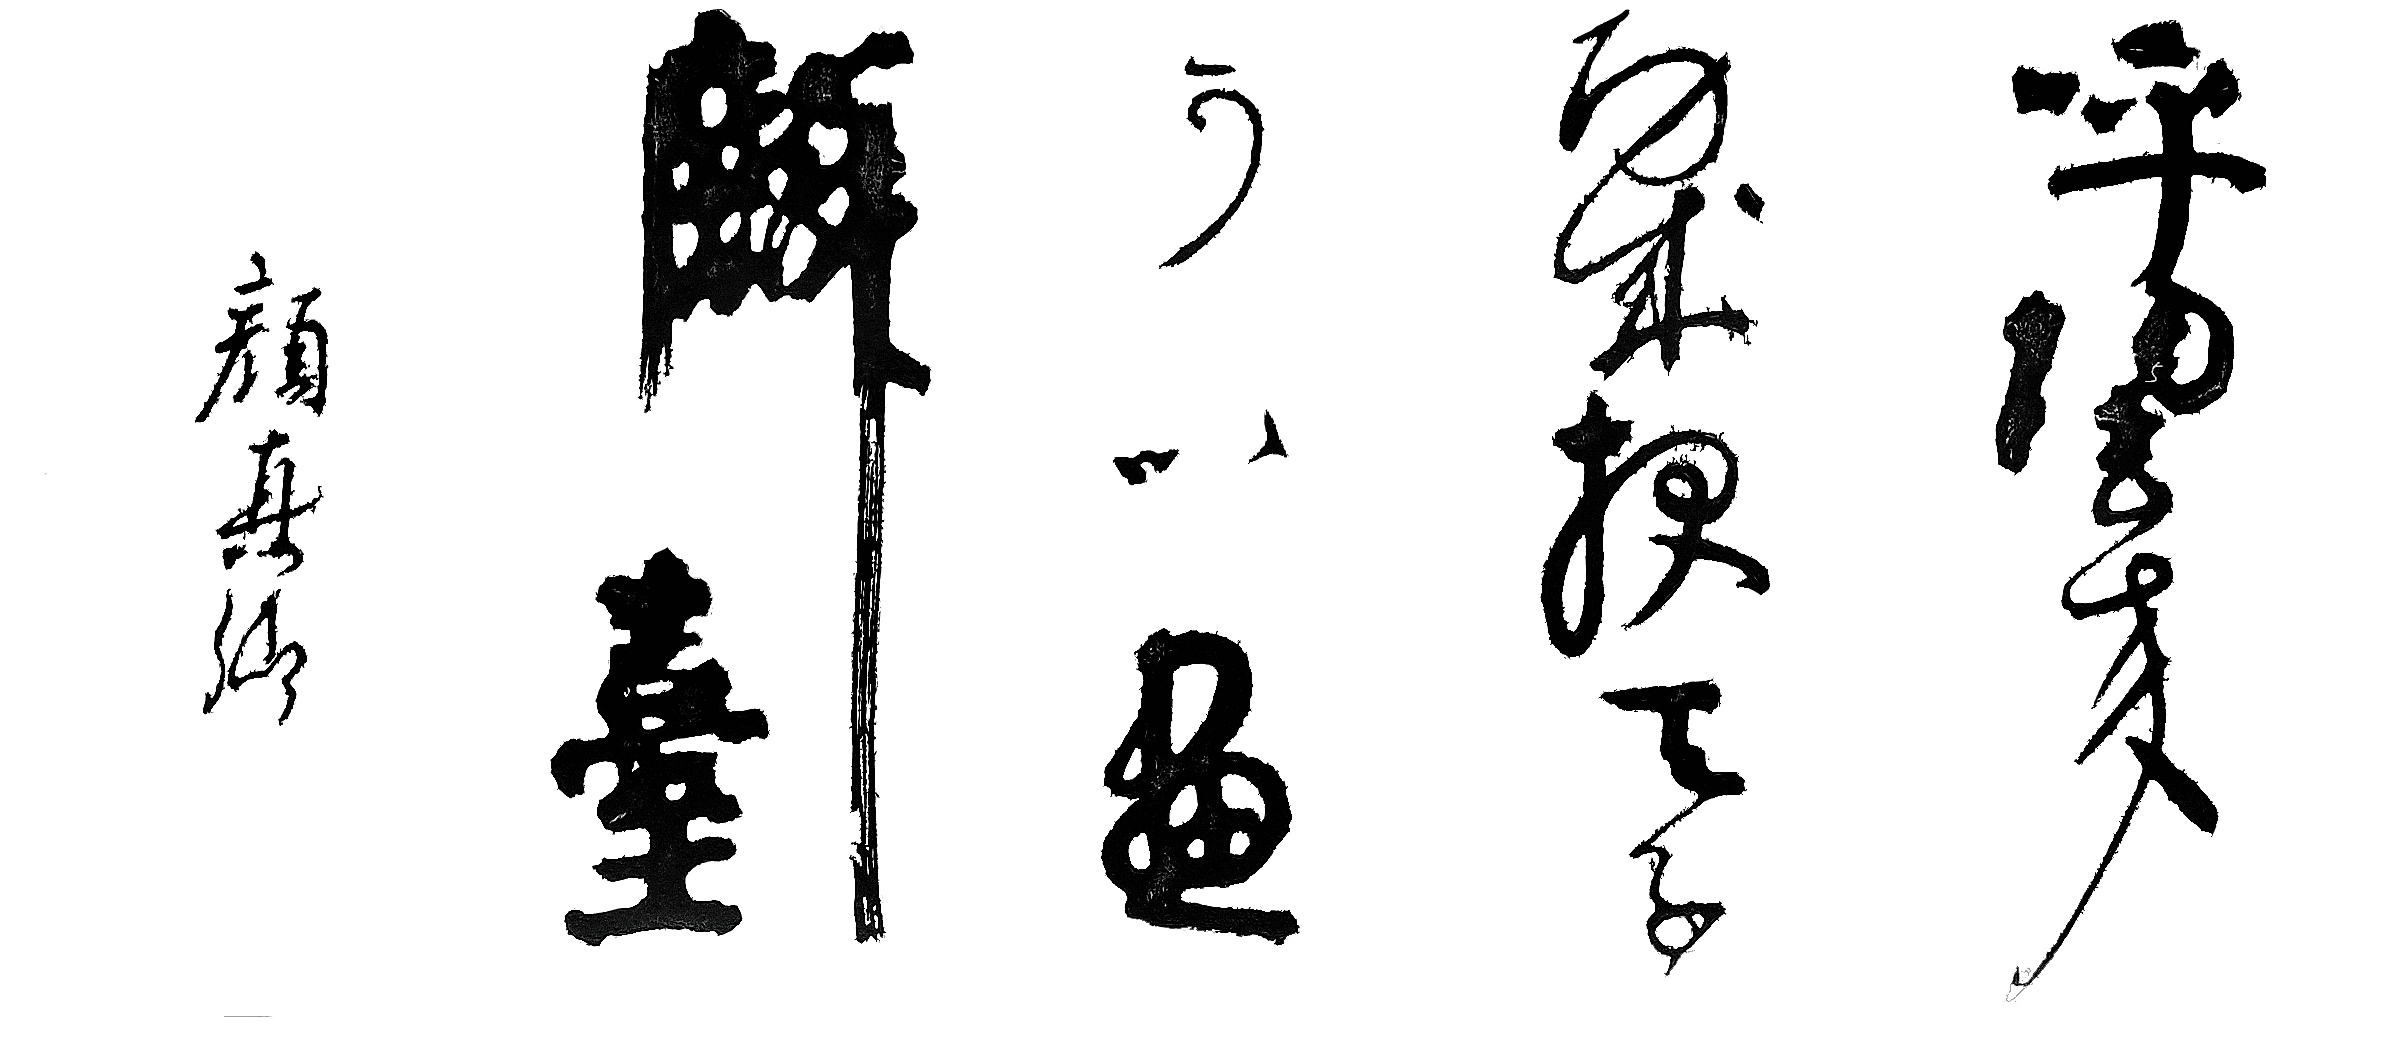 呼歸去來
功成報天子
可以畫
麟臺
顏真卿